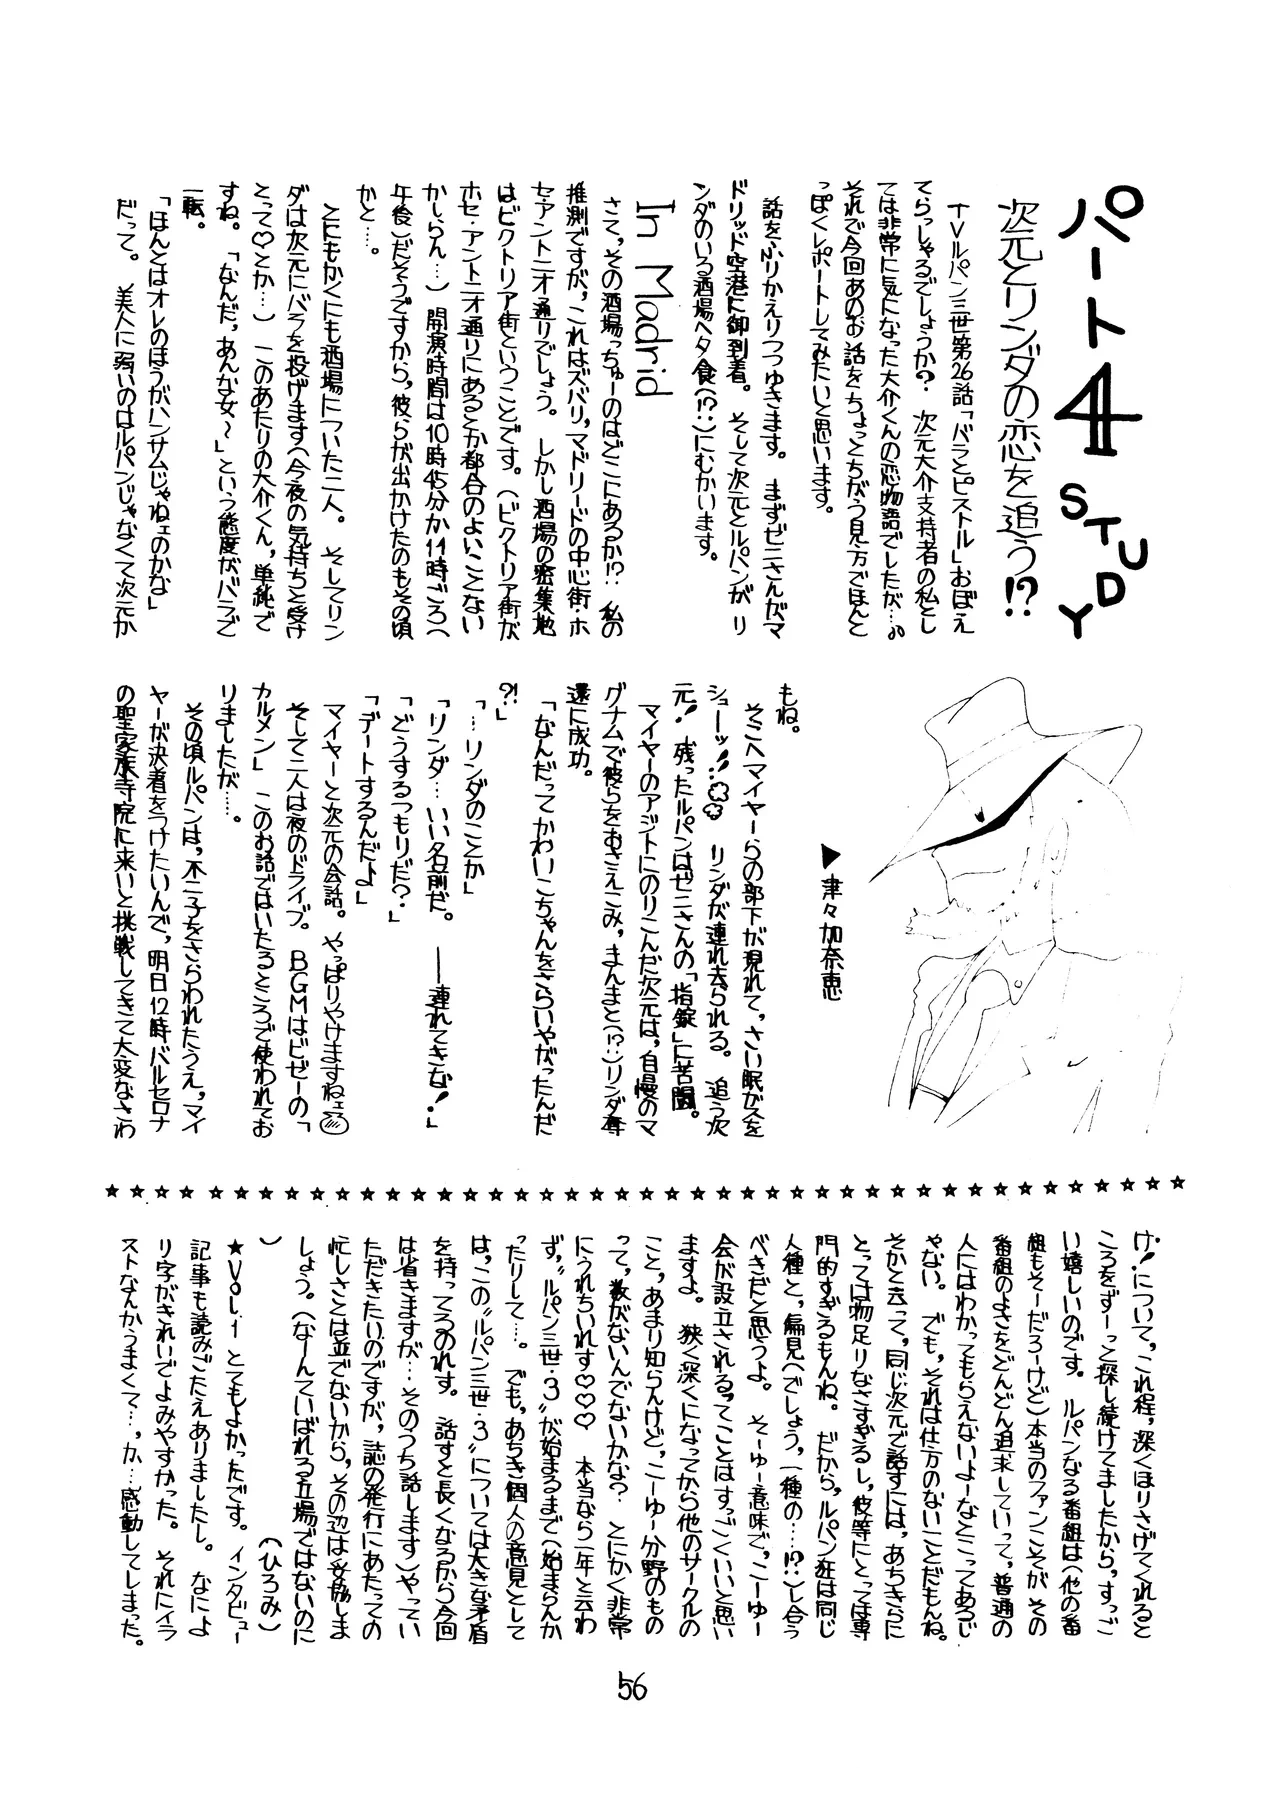 パート4 STUDY
次元とリンダの恋を追う!?
TVルパン三世第26話「バラとピストル」おぼえ
てらっしゃるでしょうか? 次元大介支持者の私とし
ては非常に気になった大介くんの恋物語でしたが…♪
それで今回あのお話をちょっとちがう見方でほんと
っぽくレポートしてみたいと思います。
話をふりかえりつつゆきます。まずゼニさんがマ
ドリッド空港に御到着。そして次元とルパンがリ
ンダのいる酒場へタ食(!?)にむかいます。
In Madrid
さて,その酒場っちゅーのはどこにあるか!? 私の
推測ですが,これはズバリ,マドリードの中心街・ホ
セ・アントニオ通りでしょう。しかし酒場の密集地
はビクトリア街ということです。(ビクトリア街が
ホセ・アントニオ通りにあるとか都合のよいことない
かしらん…) 開演時間は10時45分か11時ごろ(
午後)だそうですから,彼らが出かけたのもその頃
かと…。
とにもかくにも酒場についた二人。そしてリン
ダは次元にバラを投げます(今夜の気持ちと受け
とって♡とか…) このあたりの大介くん,単純で
すね。「なんだ,あんな女〜」という態度がバラで
一転。
「ほんとはオレのほうがハンサムじゃねェのかな」
だって。美人に弱いのはルパンじゃなくて次元か
もね。
そこへマイヤーらの部下が現れて,さい眠ガスを
シューッ!! リンダが連れ去られる。追う次
元! 残ったルパンはゼニさんの「指錠」に苦闘。
マイヤーのアジトにのりこんだ次元は,自慢のマ
グナムで彼らをおさえこみ,まんまと(!?)リンダ奪
還に成功。
「なんだってかわいこちゃんをさらいやがったんだ
?!」
「…リンダのことか」
「リンダ…いい名前だ。──連れてきな!」
「どうするつもりだ?」
「デートするんだよ」
マイヤーと次元の会話。やっぱりやけますねェ
そして二人は夜のドライブ。BGMはビゼーの「
カルメン」このお話ではいたるところで使われてお
りましたが……。
その頃ルパンは,不二子をさらわれたうえ,マイ
ヤーが決着をつけたいんで,明日12時バルセロナ
の聖家族寺院に来いと挑戦してきて大変なさわ
▶津々加奈恵
☆☆☆☆☆☆☆☆☆☆☆☆☆☆☆☆☆☆☆☆☆☆☆☆☆☆☆☆☆☆☆☆☆☆☆☆☆☆☆☆☆☆
け!について,これ程,深くほりさげてくれると
ころをずーっと探し続けてましたから,すっご
い嬉しいのです。ルパンなる番組は(他の番
組もそーだろーけど)本当のファンこそがその
番組のよさをどんどん追求していって,普通の
人にはわかってもらえないよーなとこってあるじ
ゃない。でも,それは仕方のないことだもんね。
そかと云って,同じ次元で話すには,あちきらに
とっては物足りなさすぎるし,彼等にとっては専
門的すぎるもんね。だから,ルパン狂は同じ
人種と,偏見(でしょう,一種の…!?)し合う
べきだと思うよ。そーゆー意味で,こーゆー
会が設立されるってことはすっごくいいと思い
ますよ。狭く深くになってから他のサークルの
こと,あまり知らんけど,こーゆー分野のもの
って,数がないんでないかな? とにかく非常
にうれちいれす♡♡♡ 本当なら一年と云わ
ず,〃ルパン三世・3〃が始まるまで(始まらんか
ったりして…。でも,あちき個人の意見として
は,この〃ルパン三世・3〃については大きな矛盾
を持ってるのれす。話すと長くなるから今回
は省きますが…そのうち話します)やってい
ただきたいのですが,誌の発行にあたっての
忙しさとは並でないから,その辺は妥協しま
しょう。(なーんていばれる立場ではないのに
)　(ひろみ)
★Vol.1 とてもよかったです。インタビュー
記事も読みごたえありましたし。なによ
り字がきれいでよみやすかった。それにイラ
ストなんかうまくて…,か…感動してしまった。
56